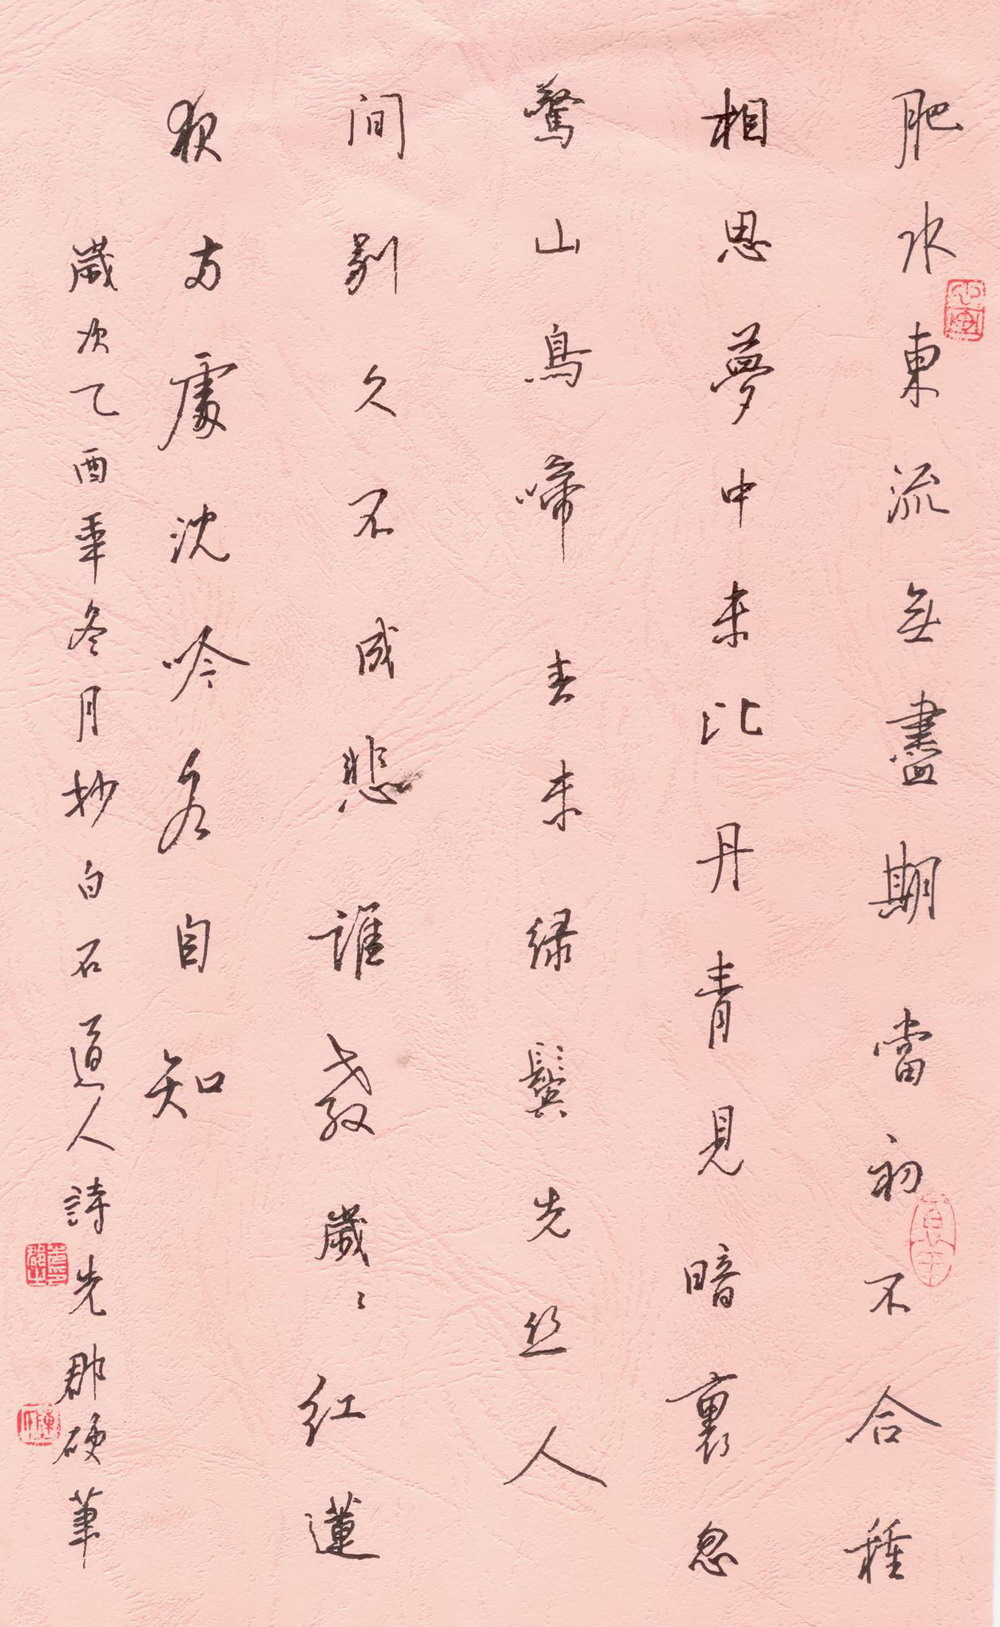 肥水東流無盡期當初不合種
相思夢中未比丹青見暗裏忽
驚山鳥啼春未綠鬢先丝人
間別久不成悲誰教歲〻紅蓮
夜兩處沈吟各自知
歲次乙酉年冬月抄白石道人詩先郡硬筆